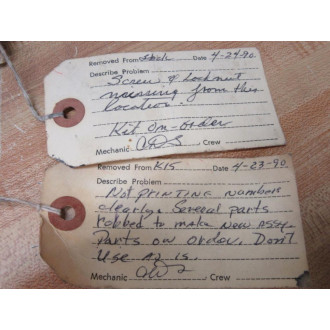 Removed From Stock Date 4-24-90
Describe Problem
Screw & Locknut
missing from this
location.
Kit On-order
Mechanic Crew
Removed From K15 Date 4-23-90
Describe Problem
Not printing numbers
clearly. Several parts
robbed to make new assy.
Parts on order. Don't
Use as is.
Mechanic Crew